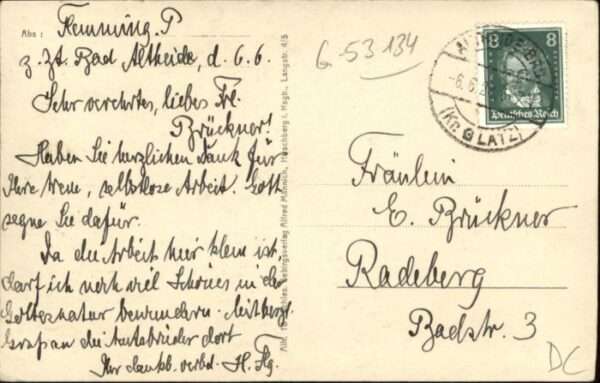 Abs: Flemming, P
z. Zt. Bad Altheide, d. 6.6.
Sehr verehrtes, liebes Frl.
Brückner!
Haben Sie herzlichen Dank für
Ihre treue, selbstlose Arbeit. Gott
segne Sie dafür.
Da die Arbeit hier klein ist,
darf ich noch viel Schönes in der
Gottesnatur bewundern. Mit herzl.
Grüß an die Amtsbrüder dort
Ihr dankb. verbd. H. Flg.
Gebirgsverlag Alfred Mannich, Hirschberg i. Rsgb., Langstr. 4/5
G-53134
8 8
Deutsches Reich
-6.6.
(Kr. GLATZ)
Fräulein
E. Brückner
Radeberg
Badstr. 3
DC